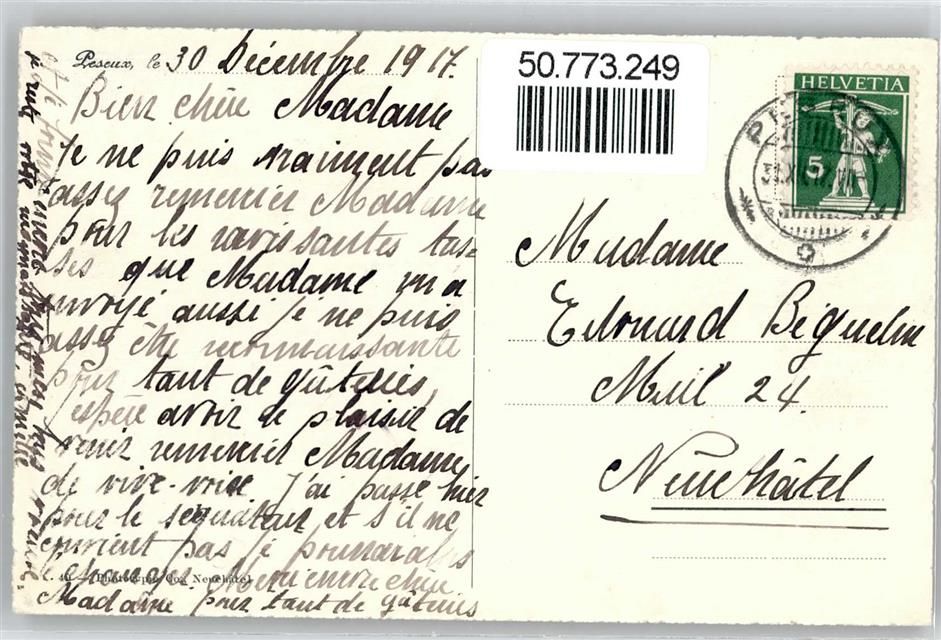 Peseux, le 30 Décembre 1917.
Bien chère Madame
Je ne puis vraiment pas
assez remercier Madame
pour les ravissantes tas-
ses que Madame m'a
envoyé aussi je ne puis
assez être reconnaissante
pour tant de gâteries,
espère avoir le plaisir de
venir remercier Madame
de vive-voix J'ai passé hier
pour le et s'il ne
convient pas je pourrai
l'échanger. Merci encore chère
Madame pour tant de gâteries
votre
50.773.249
HELVETIA
5
PESEUX
Madame
Edouard Béguelin
Mail 24.
Neuchâtel
Photographie Co., Neuchâtel